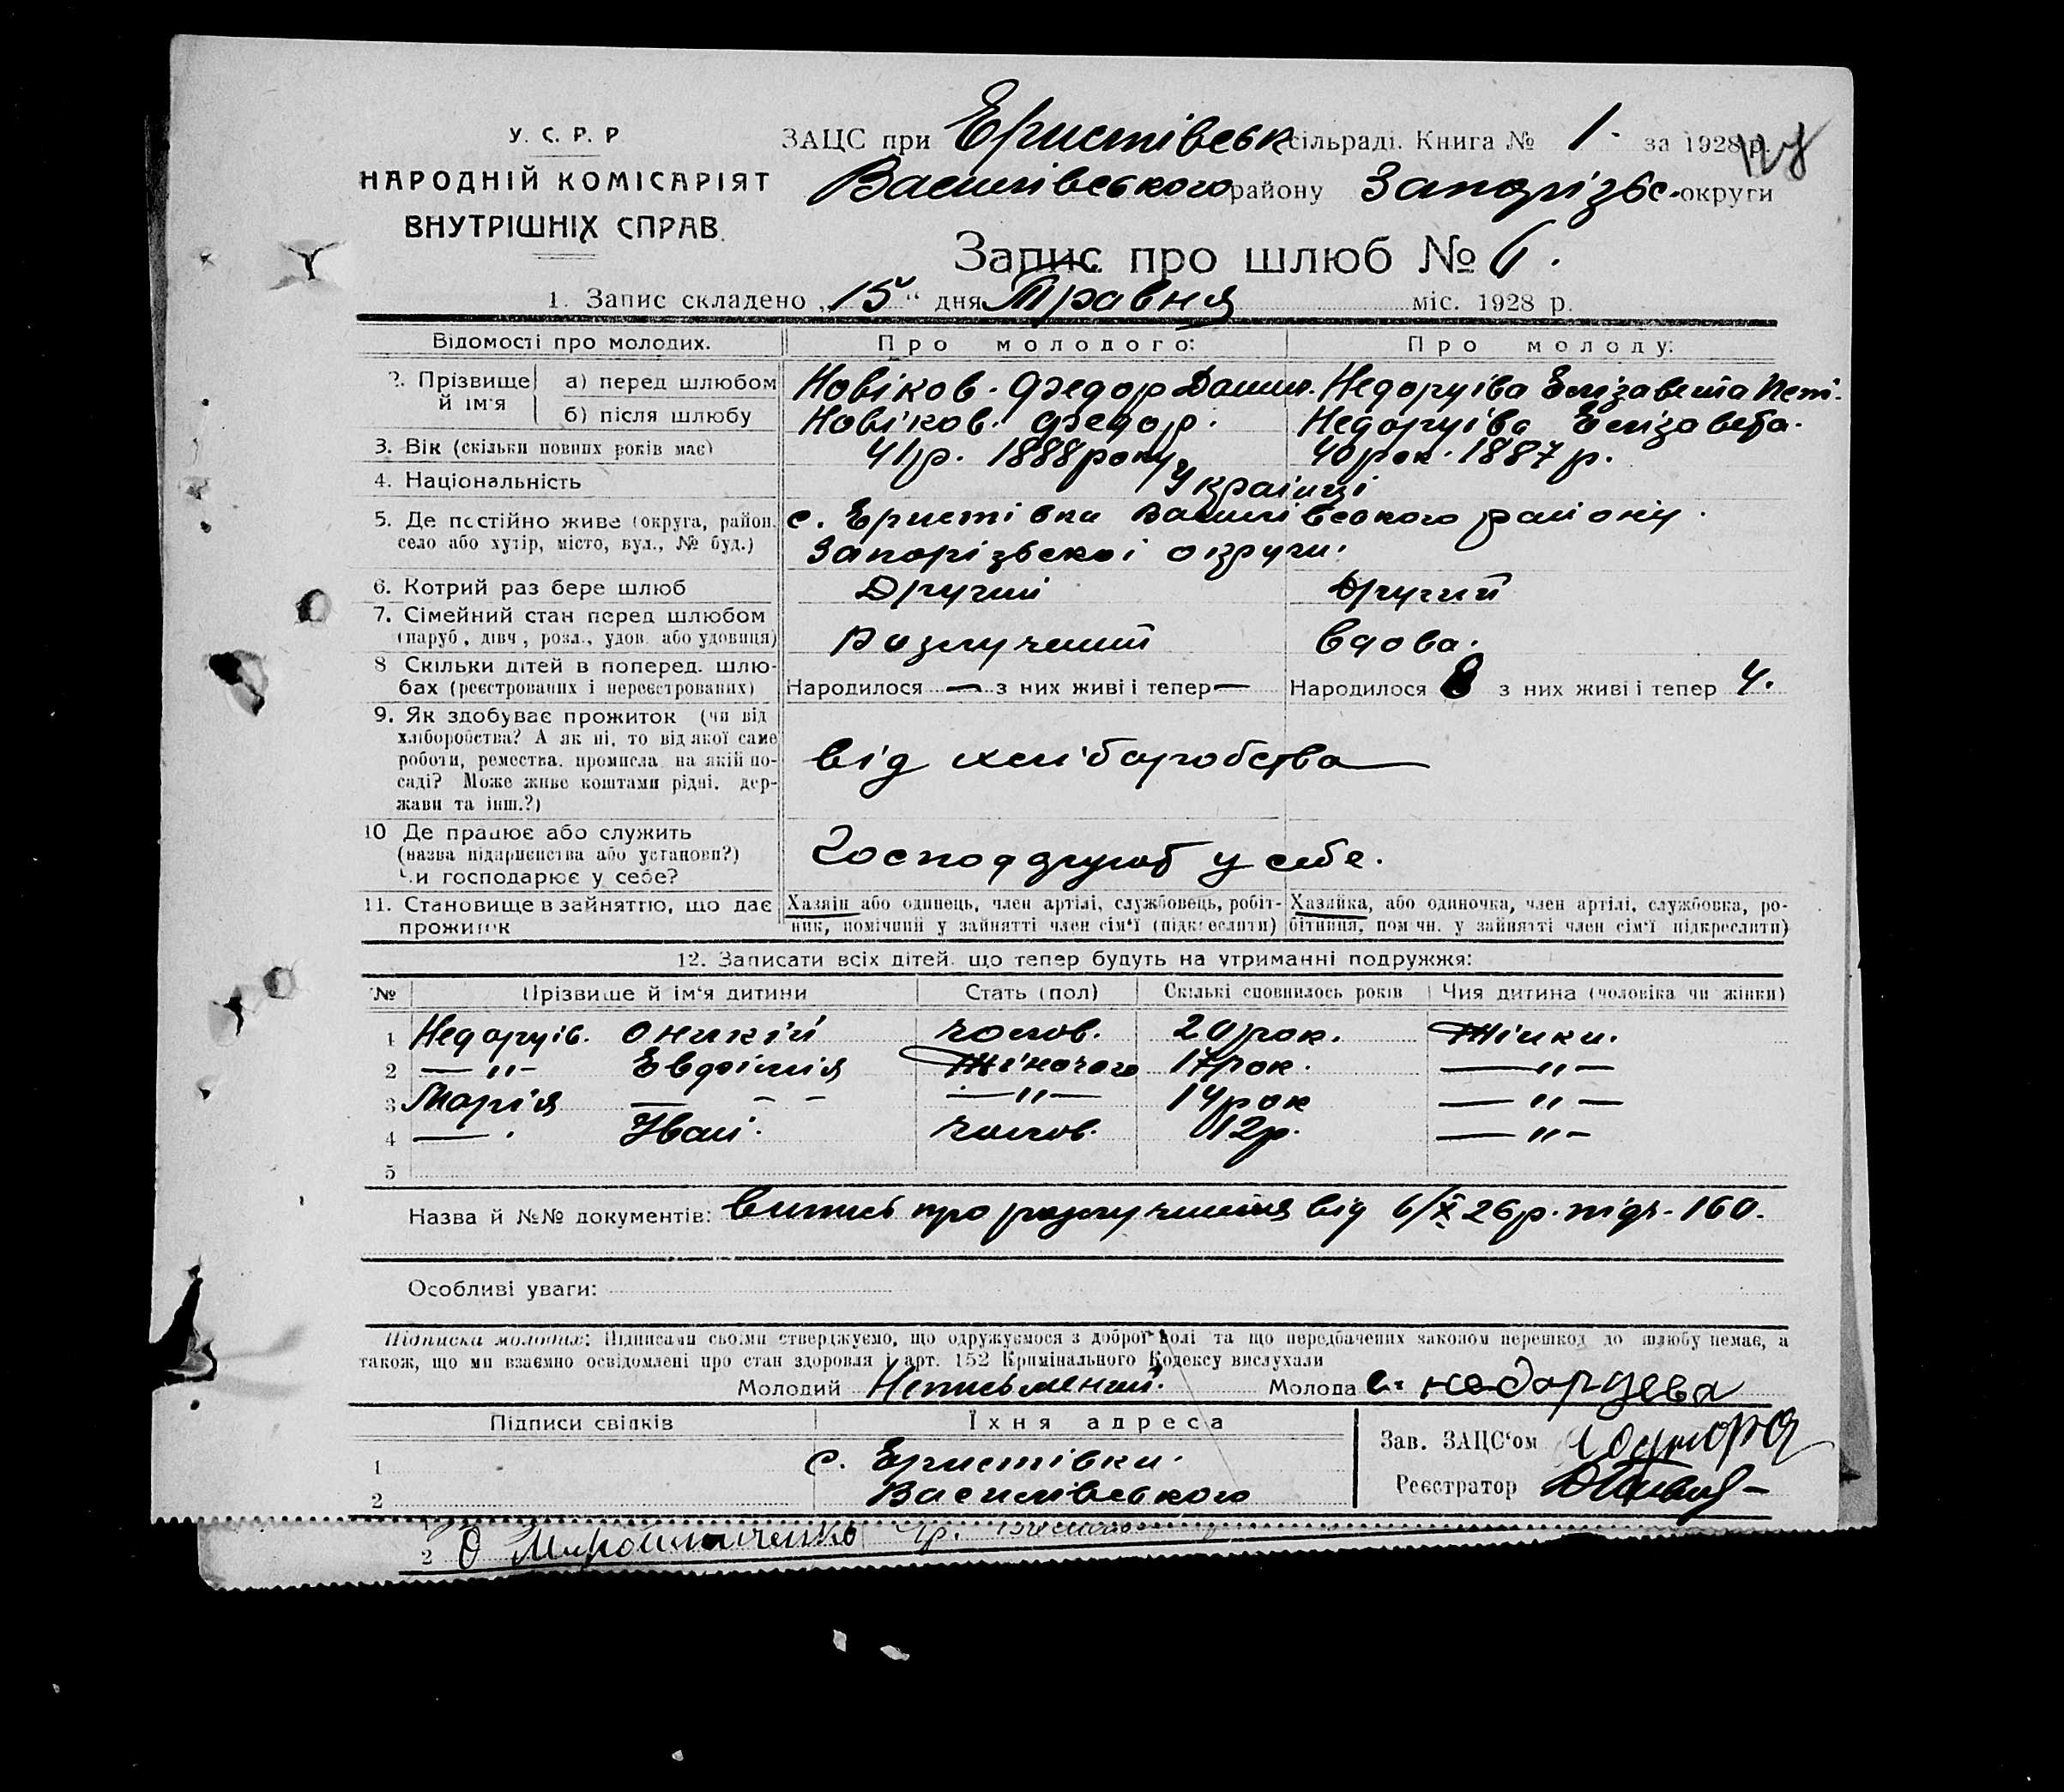 У. С. Р. Р
НАРОДНІЙ КОМІСАРІЯТ
ВНУТРІШНІХ СПРАВ.
ЗАЦС при Еристівськ сільраді. Книга № 1. за 1928 р.
Василівського району Запорізьс. округи
Запис про шлюб № 6.
1. Запис складено „15“ дня Травня міс. 1928 р.
Відомості про молодих. Про молодого: Про молоду:
2. Прізвище й ім'я а) перед шлюбом Новіков. Федор Данил. Недоруіва Елізавета Петі.
б) після шлюбу Новіков. Федор. Недоруіва Елізавета.
3. Вік (скільки повних років має) 41 р. 1888 року 40 рок. 1887 р.
4. Національність Українці
5. Де постійно живе (округа, район, с. Еристівки Василівського району.
село або хутір, місто, вул., № буд.) Запорізьскоі округи.
6. Котрий раз бере шлюб Другий Другий
7. Сімейний стан перед шлюбом
(паруб., дівч., розл., удов. або удовиця) Розлучений Вдова.
8 Скільки дітей в поперед. шлю-
бах (реєстрованих і нереєстрованих) Народилося — з них живі і тепер — Народилося 8 з них живі і тепер 4.
9. Як здобуває прожиток (чи від
хліборобства? А як ні, то від якої саме
роботи, ремества, промисла, на якій по-
саді? Може живе коштами рідні, дер-
жави та інш.?)
від хліборобства
10 Де працює або служить
(назва підприємства або установи?)
Чи господарює у себе?
Господарують у себе.
11. Становище в зайняттю, що дає Хазяїн або одинець, член артілі, службовець, робіт- Хазяйка, або одиночка, член артілі, службовка, ро-
прожиток ник, помічний у зайнятті член сім'ї (підкреслити) бітниця, помічн. у зайнятті член сім'ї підкреслити)
12. Записати всіх дітей, що тепер будуть на утриманні подружжя:
№ Прізвище й ім'я дитини Стать (пол) Скількі сповнилось років Чия дитина (чоловіка чи жінки)
1 Недоруів. Оникій чолов. 20 рок. Жінки.
2 —"— Евдокімія Жіночого 17 рок. —"—
3 Марія — - - —"— 14 рок —"—
4 — . Іван. чолов. 12 р. —"—
5
Назва й №№ документів: Витис про розлучення від 6/X 26 р. під. - 160.
Особливі уваги:
Підписка молодих: Підписами своїми стверджуємо, що одружуємося з доброї волі та що передбачених законом перешкод до шлюбу немає, а
також, що ми взаємно освідомлені про стан здоровля і арт. 152 Кримінального Кодексу вислухали
Молодий Неписьмений. Молода Е. недоруева
Підписи свідків Їхня адреса
Зав. ЗАЦС'ом
1 с. Еристівки.
Реєстратор
2 Василівського
2 О Мирошниченко